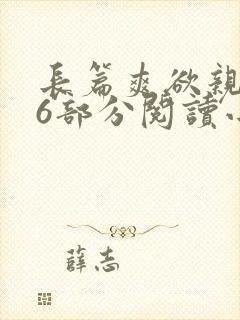 長篇爽欲親
6部分閱讀小
薛志